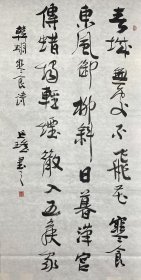 春城無處不飛花寒食
東風御柳斜日暮漢宮
傳蜡燭輕煙散入五侯家
韓翃寒食詩